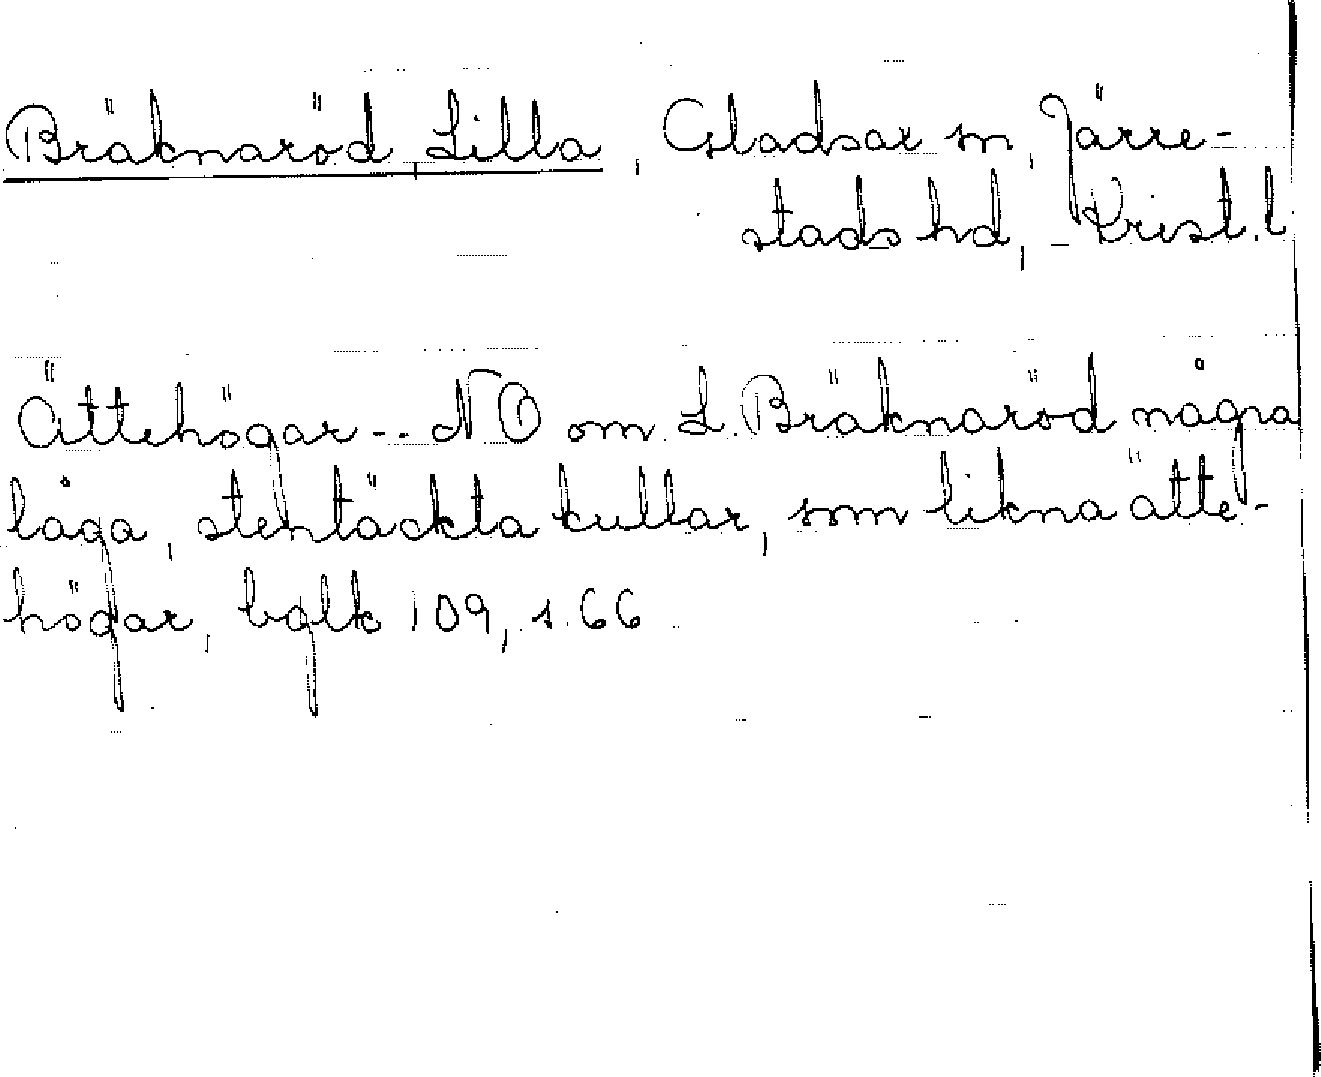 Bräknaröd, Lilla, Gladsax sn, Järre-
stads hd, Krist. l
Ättehögar -- NO om L. Bräknaröd några
låga, stentäckta kullar, som likna ätte-
högar, bglb 109, s. 66